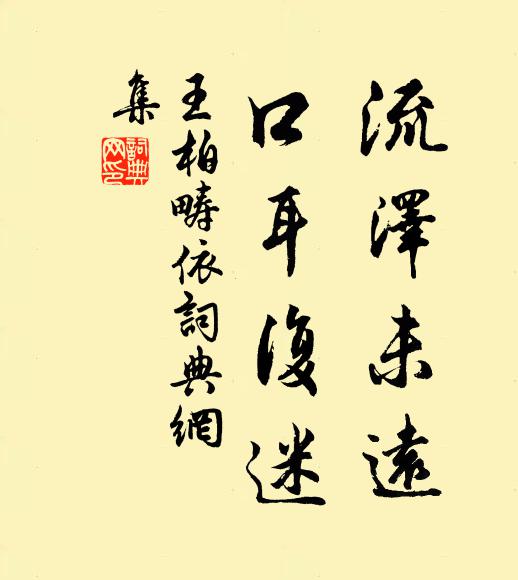 流澤未遠
口耳復迷
王柏疇依詞典網
集
詞典网印